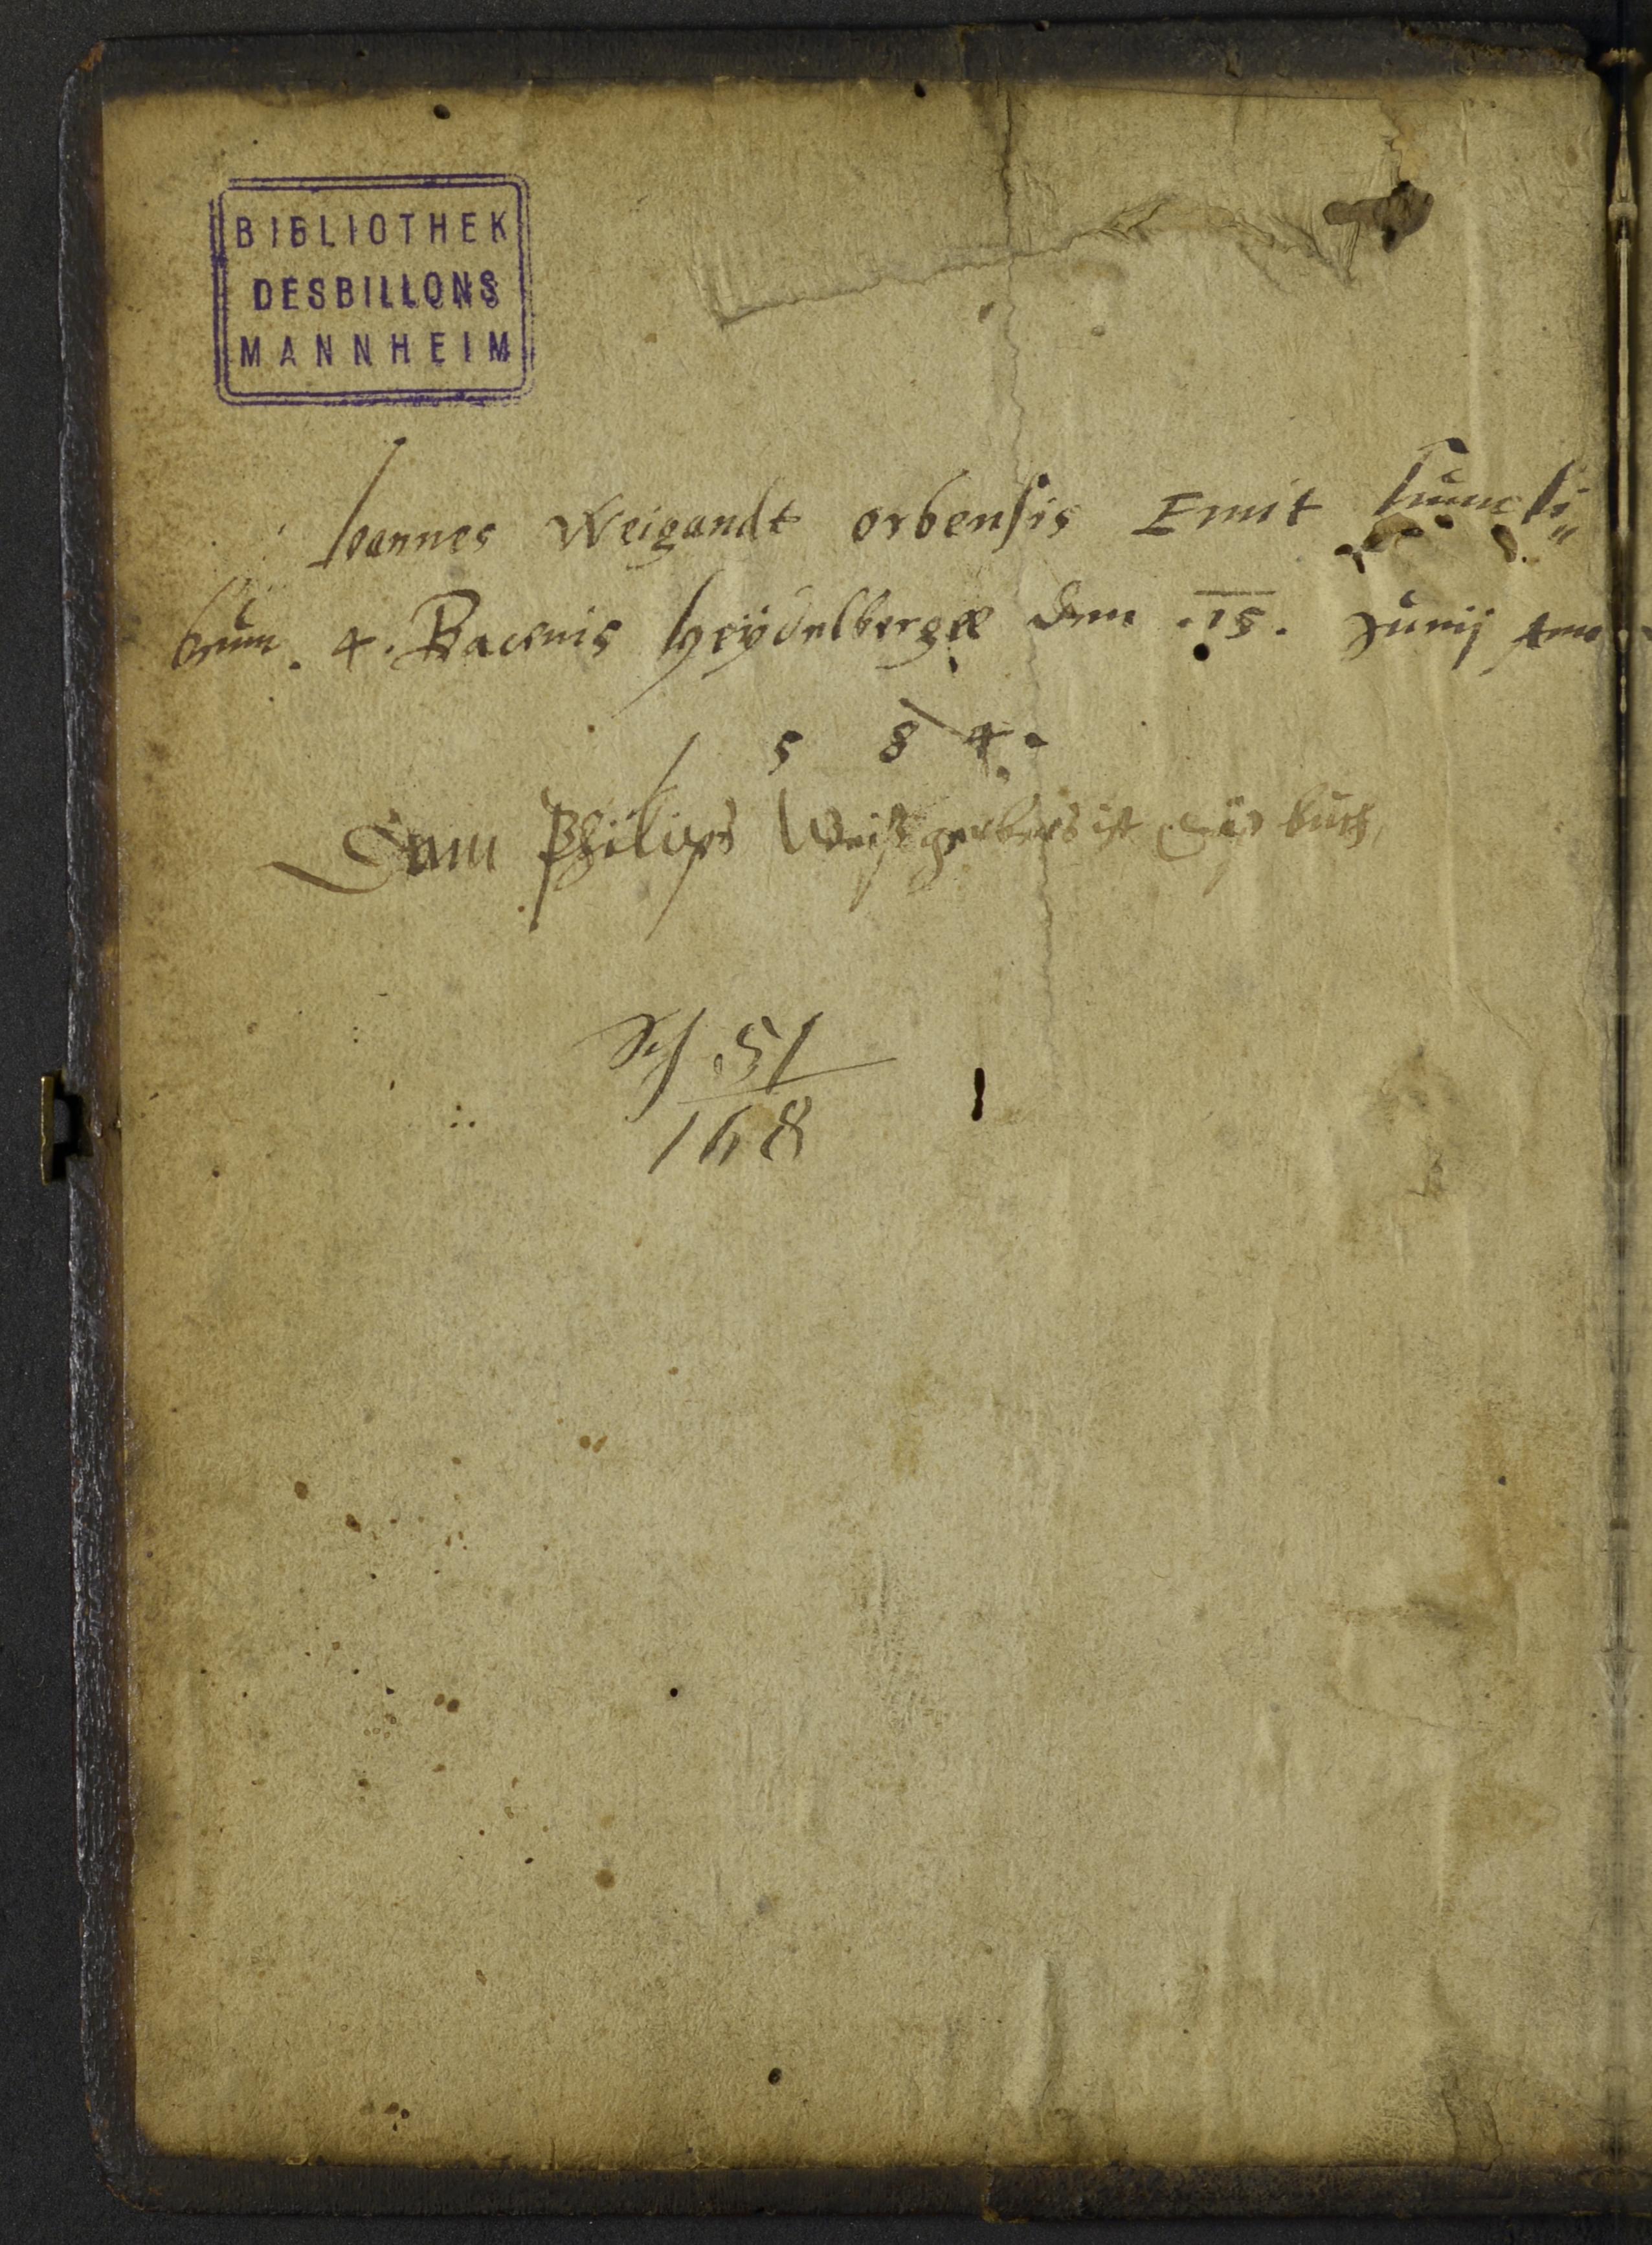 BIBLIOTHEK
DESBILLONS
MANNHEIM
Ioannes Weigandt orbensis Emit hunc li„
brum. 4. Bacenis Heÿdelbergæ den .15. Junij Anno
1 5 8 4.
Dem Philips Weißgerbers ist das buch,
51
168